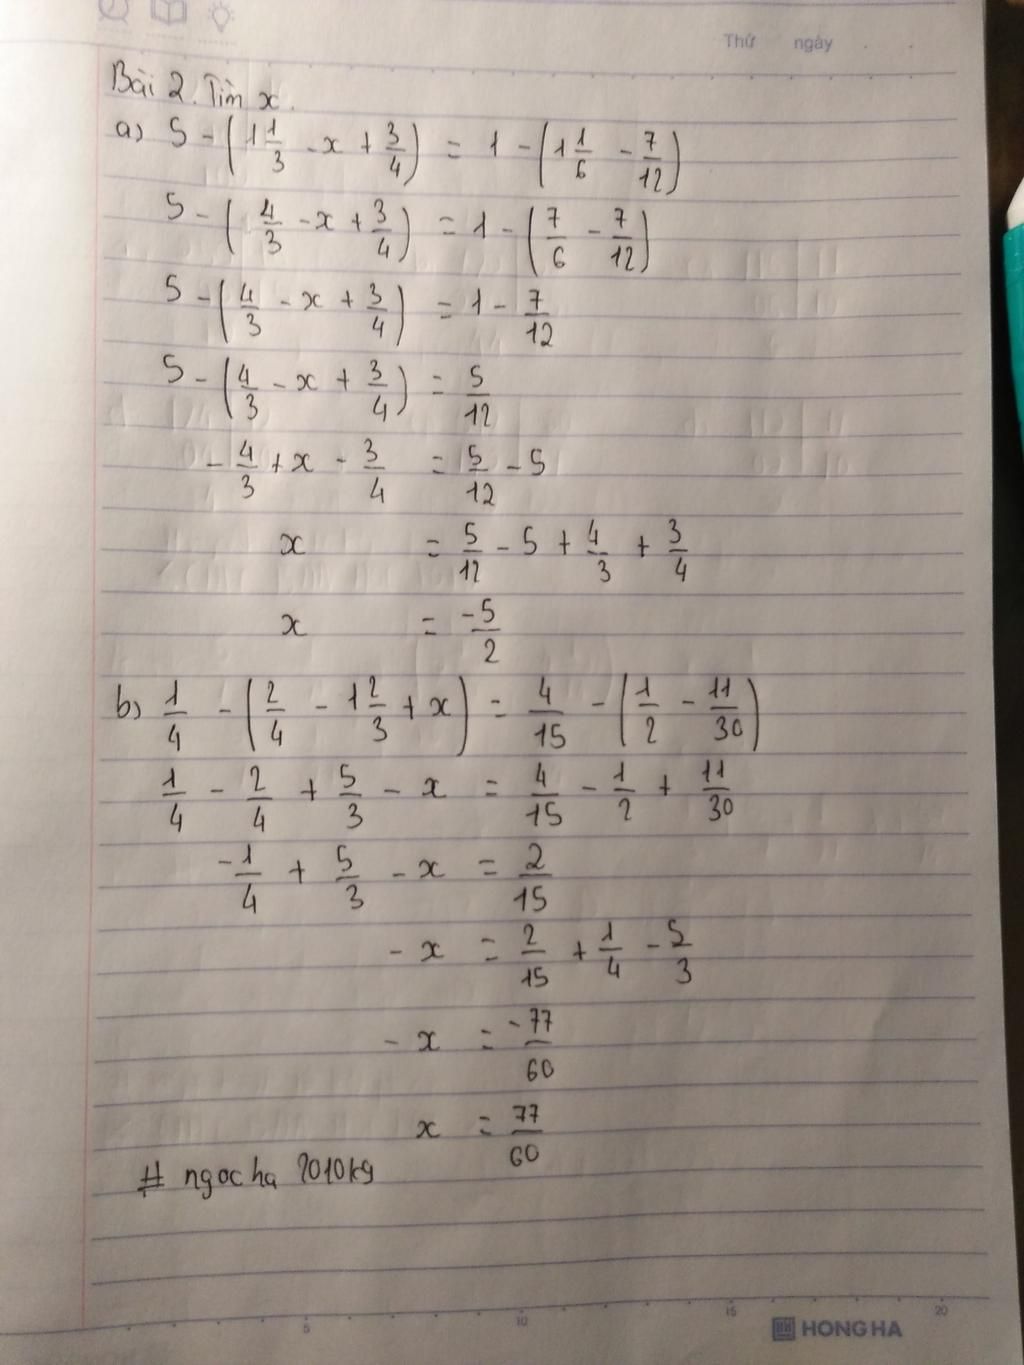 Thứ ngày
Bài 2. Tìm x.
a) 5 - (1 1/3 - x + 3/4) = 1 - (1 1/6 - 7/12)
5 - (4/3 - x + 3/4) = 1 - (7/6 - 7/12)
5 - (4/3 - x + 3/4) = 1 - 7/12
5 - (4/3 - x + 3/4) = 5/12
- 4/3 + x - 3/4 = 5/12 - 5
x = 5/12 - 5 + 4/3 + 3/4
x = -5/2
b) 1/4 - (2/4 - 1 2/3 + x) = 4/15 - (1/2 - 11/30)
1/4 - 2/4 + 5/3 - x = 4/15 - 1/2 + 11/30
-1/4 + 5/3 - x = 2/15
- x = 2/15 + 1/4 - 5/3
- x = -77/60
x = 77/60
# ngocha 2010kg
5 10 15 20
HONG HA